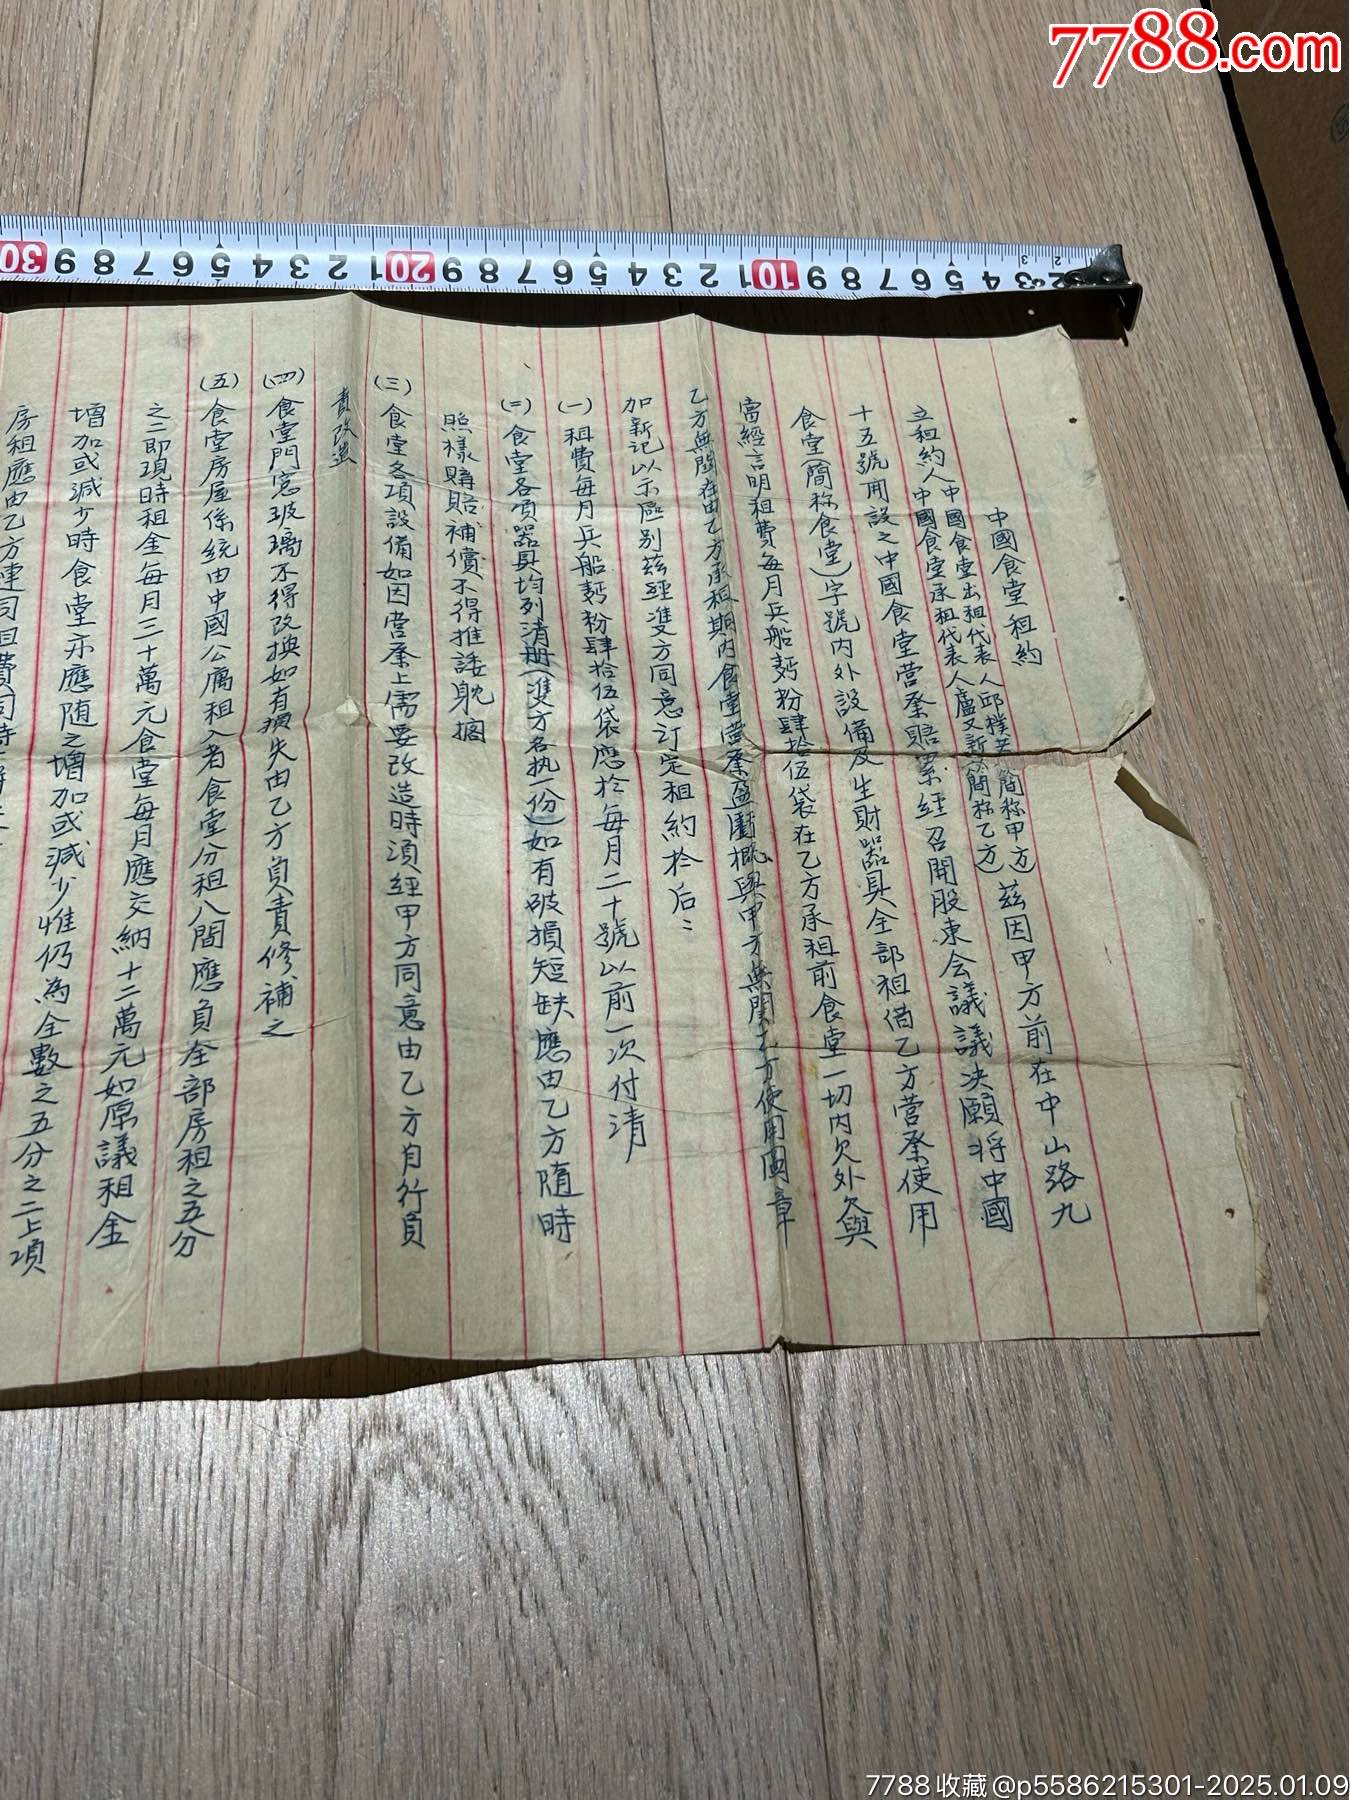 7788.com
中國食堂租約
立租約人中國食堂出租代表人邱樸(簡称甲方)茲因甲方前在中山路九
中國食堂承租代表人盧又新(簡称乙方)
十五號開設之中國食堂营業賠累經召開股東会議議决願将中國
食堂(簡称食堂)字號内外設備及生財器具全部租借乙方营業使用
當經言明租費每月兵船麪粉肆拾伍袋在乙方承租前食堂一切内欠外欠與
乙方無関在由乙方承租期内食堂营業盈虧概與甲方無関乙方使用圖章
加新記以示區别茲經雙方同意訂定租約於后:
(一)租費每月兵船麪粉肆拾伍袋應於每月二十號以前一次付清
(二)食堂各項器具均列清册(雙方各执一份)如有破損短缺應由乙方隨時
照樣購賠補償不得推諉躭擱
(三)食堂各項設備如因营業上需要改造時須經甲方同意由乙方自行負
責改造
(四)食堂門窓玻璃不得改換如有損失由乙方負責修補之
(五)食堂房屋係統由中國公寓租入者食堂分租八間應負全部房租之五分
之二即現時租金每月三十萬元食堂每月應交納十二萬元如原議租金
增加或減少時食堂亦應随之增加或減少惟仍為全數之五分之二上項
房租應由乙方連同租費同時
30 9 8 7 6 5 4 3 2 1 20 9 8 7 6 5 4 3 2 1 10 9 8 7 6 5 4 3 2
7788收藏@p5586215301-2025.01.09